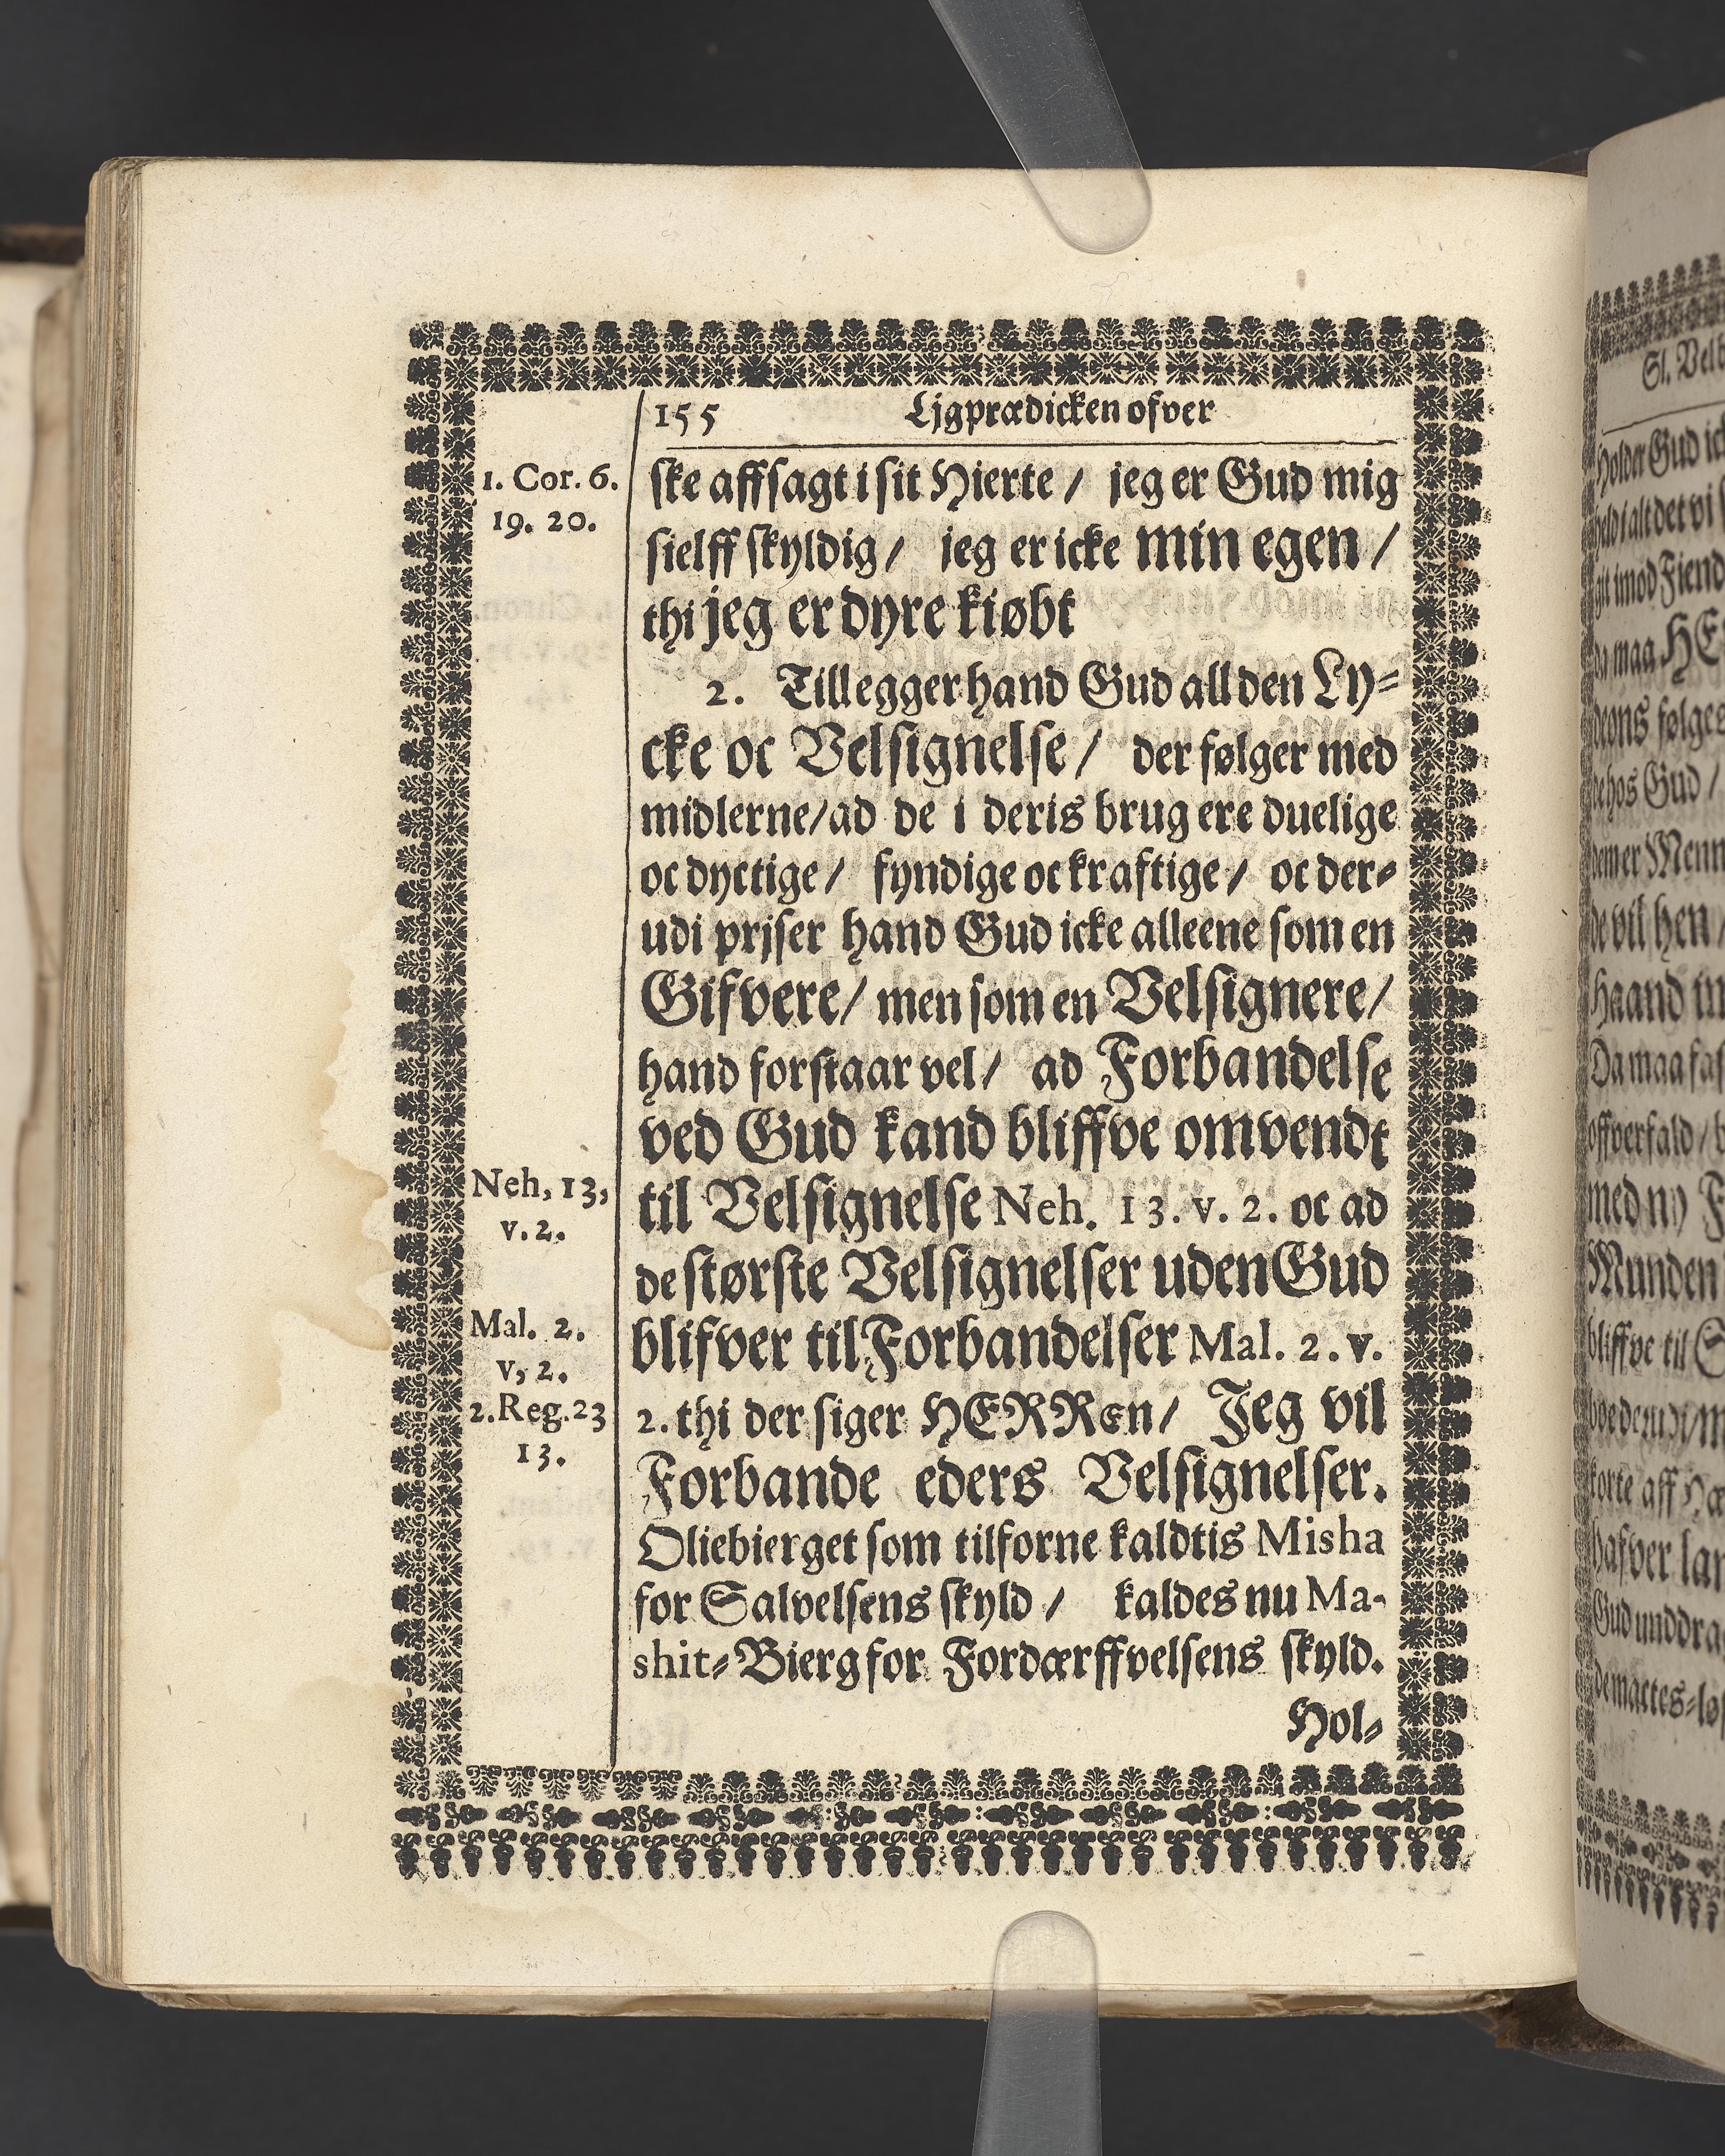 155 Ljgprædicken ofver
1. Cor. 6.
19. 20.
ske affsagt i sit Hierte / jeg er Gud mig
sielff skyldig / jeg er icke min egen /
thi jeg er dyre kiøbt
2. Tillegger hand Gud all den Ly-
cke oc Velsignelse / der følger med
midlerne / ad de i deris brug ere duelige
oc dyctige / fyndige oc kraftige / oc der-
udi prjser hand Gud icke alleene som en
Gifvere / men som en Velsignere /
hand forstaar vel / ad Forbandelse
ved Gud kand bliffve omvendt
Neh, 13,
v. 2.
til Velsignelse Neh. 13. v. 2. oc ad
de største Velsignelser uden Gud
Mal. 2.
v, 2.
blifver til Forbandelser Mal. 2. v.
2. Reg. 23
13.
2. thi der siger HERREn / Jeg vil
Forbande eders Velsignelser.
Oliebierget som tilforne kaldtis Misha
for Salvelsens skyld / kaldes nu Ma-
shit-Bierg for Fordærffvelsens skyld.
Hol-
Sl. Velb
Holder Gud ick
Gud /
Munden